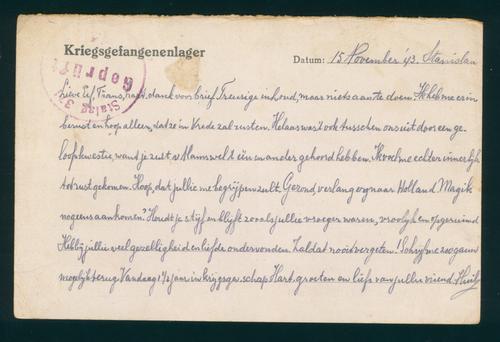 Kriegsgefangenenlager
Datum: 15 November '43. Stanislau
Stalag 37
Geprüft
Lieve Eef, Frans, hart. dank voor brief. Treurige inhoud, maar niets aan te doen. Ik heb me er in
berust en hoop alleen, dat ze in vrede zal rusten. Helaas was 't ook tusschen ons uit door een ge-
loofskwestie, want je zult v. Mams wel t één en ander gehoord hebben. Ik voel me echter innerlijk
tot rust gekomen. Hoop, dat jullie me begrijpen zult. Gezond, verlang erg naar Holland. Mag ik
nog eens aankomen? Houdt je stijf en blijft zooals jullie vroeger waren, vroolijk en opgeruimd
Heb bij jullie veel gezelligheid en liefde ondervonden. Zal dat nooit vergeten! Schrijf me zoo gauw
mogelijk terug. Vandaag 1½ jaar in krijgsge. schap. Hart. groeten en liefs van jullie vriend.